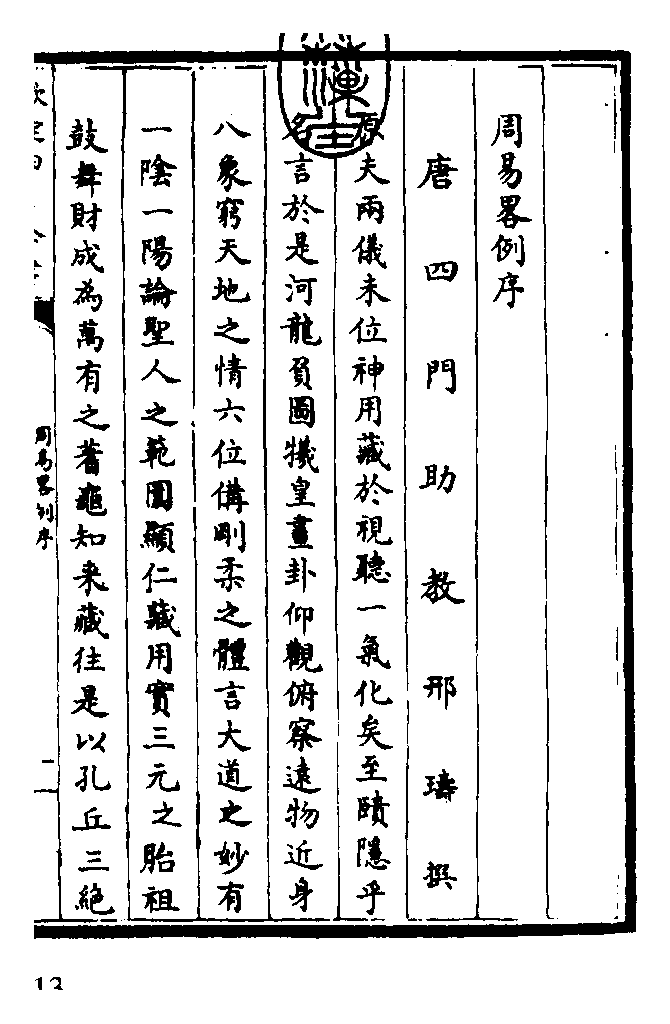 周易畧例序
唐四門助教邢璹撰
原夫兩儀未位神用藏於視聽一氣化矣至賾隱乎
名言於是河龍負圖犧皇畫卦仰觀俯察遠物近身
八象窮天地之情六位備剛柔之體言大道之妙有
一陰一陽論聖人之範圍顯仁藏用實三元之胎祖
鼓舞財成為萬有之蓍龜知來藏往是以孔丘三絶
周易畧例序
二
13